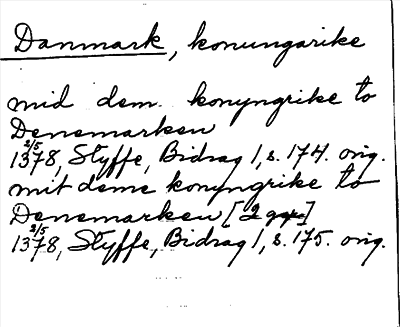 Danmark, konungarike
mid dem. konyngrike to
Denemarken
1378, 2/5 Styffe, Bidrag 1, s. 174. orig.
mit deme konyngrike to
Denemarken [2 ggr.]
1378, 2/5 Styffe, Bidrag 1, s. 175. orig.